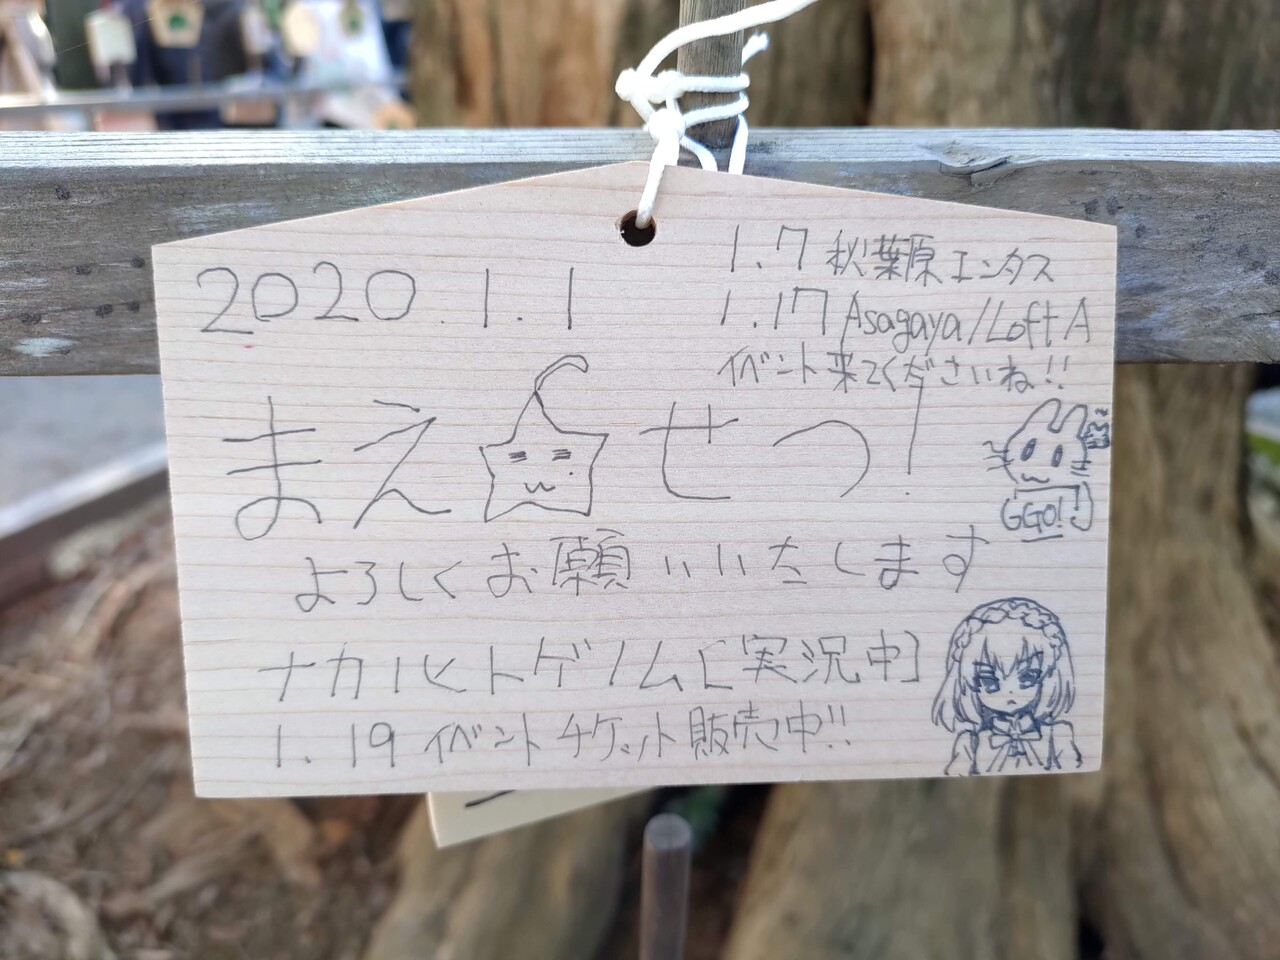 2020.1.1
1.7 秋葉原エンタス
1.17 Asagaya/Loft A
イベント来てくださいね!!
まえ☆せつ!
GGO!!
よろしくお願いいたします
ナカノヒトゲノム[実況中]
1.19 イベントチケット販売中!!